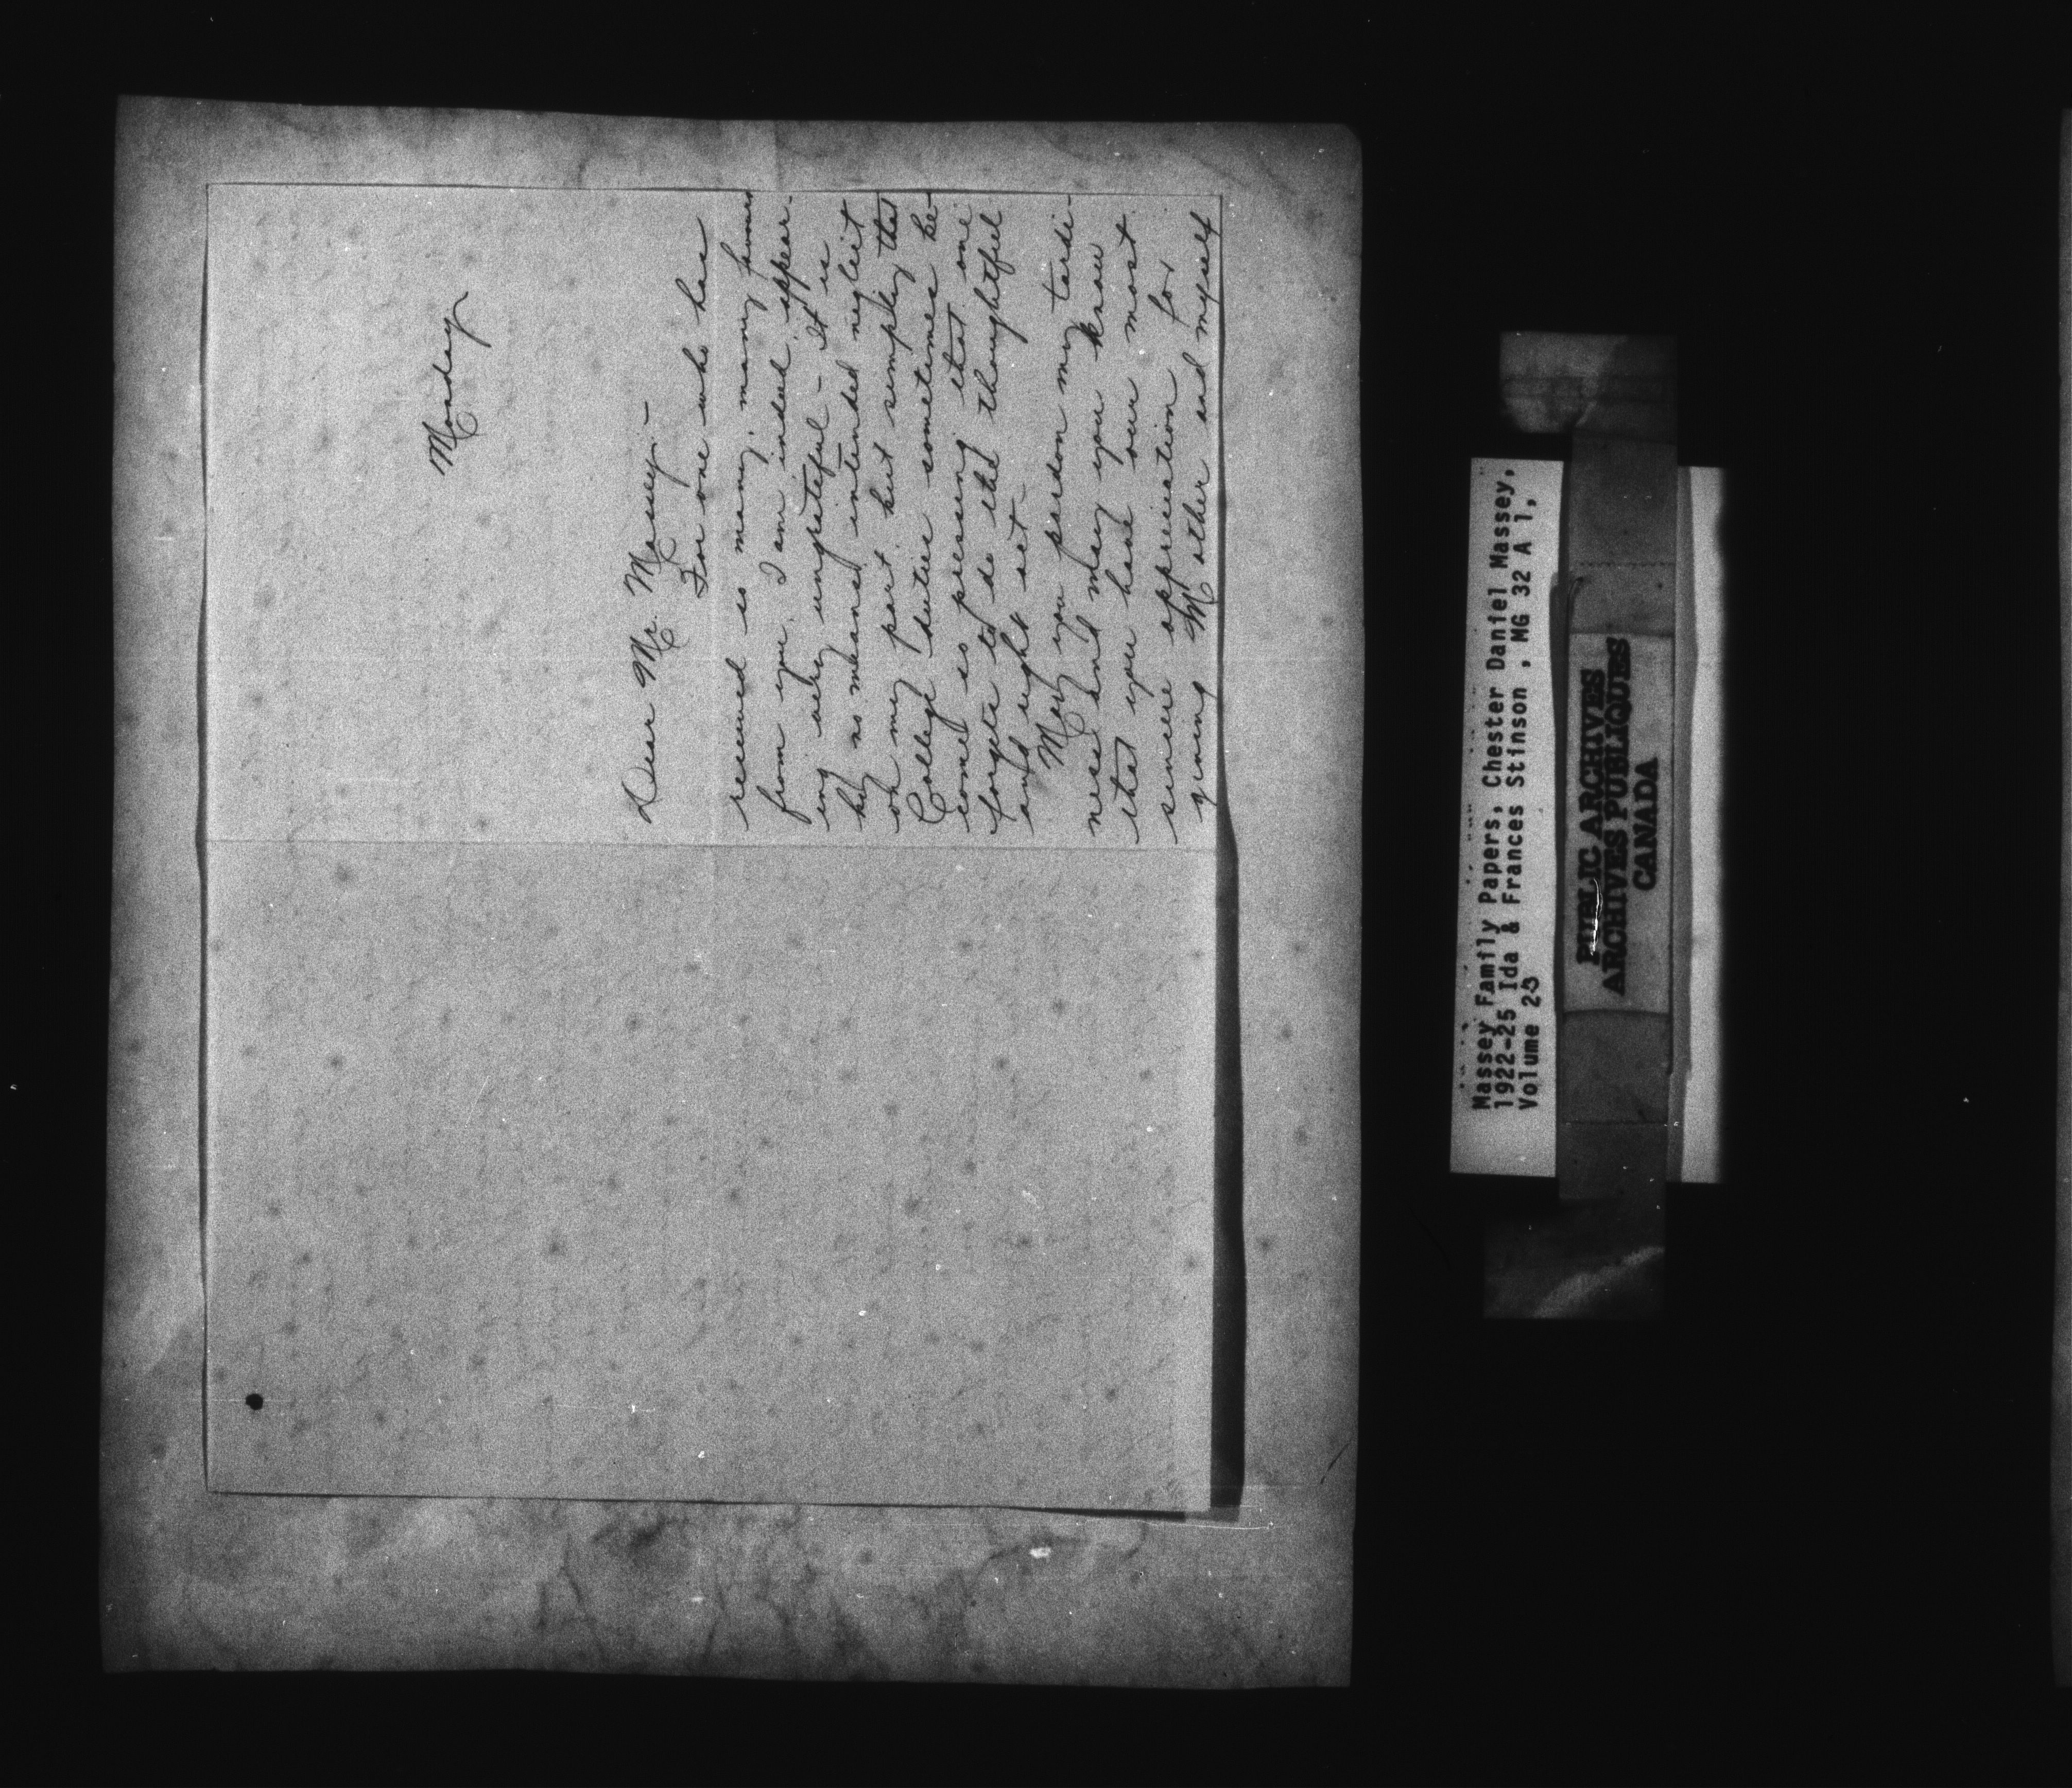 Monday
Dear Mr. Massey:—
For one who has
received so many, many favours
from you, I am indeed, appear-
ing very ungrateful – It is
by no means intended neglect
on my part, but simply that
College duties sometimes be-
come so pressing that one
forgets to do the thoughtful
and right act.
May you pardon my tardi-
ness and may you know
that you have our most
sincere appreciation for
giving Mother and myself
Massey Family Papers, Chester Daniel Massey,
1922-25 Ida & Frances Stinson , MG 32 A 1,
Volume 23
PUBLIC ARCHIVES
ARCHIVES PUBLIQUES
CANADA